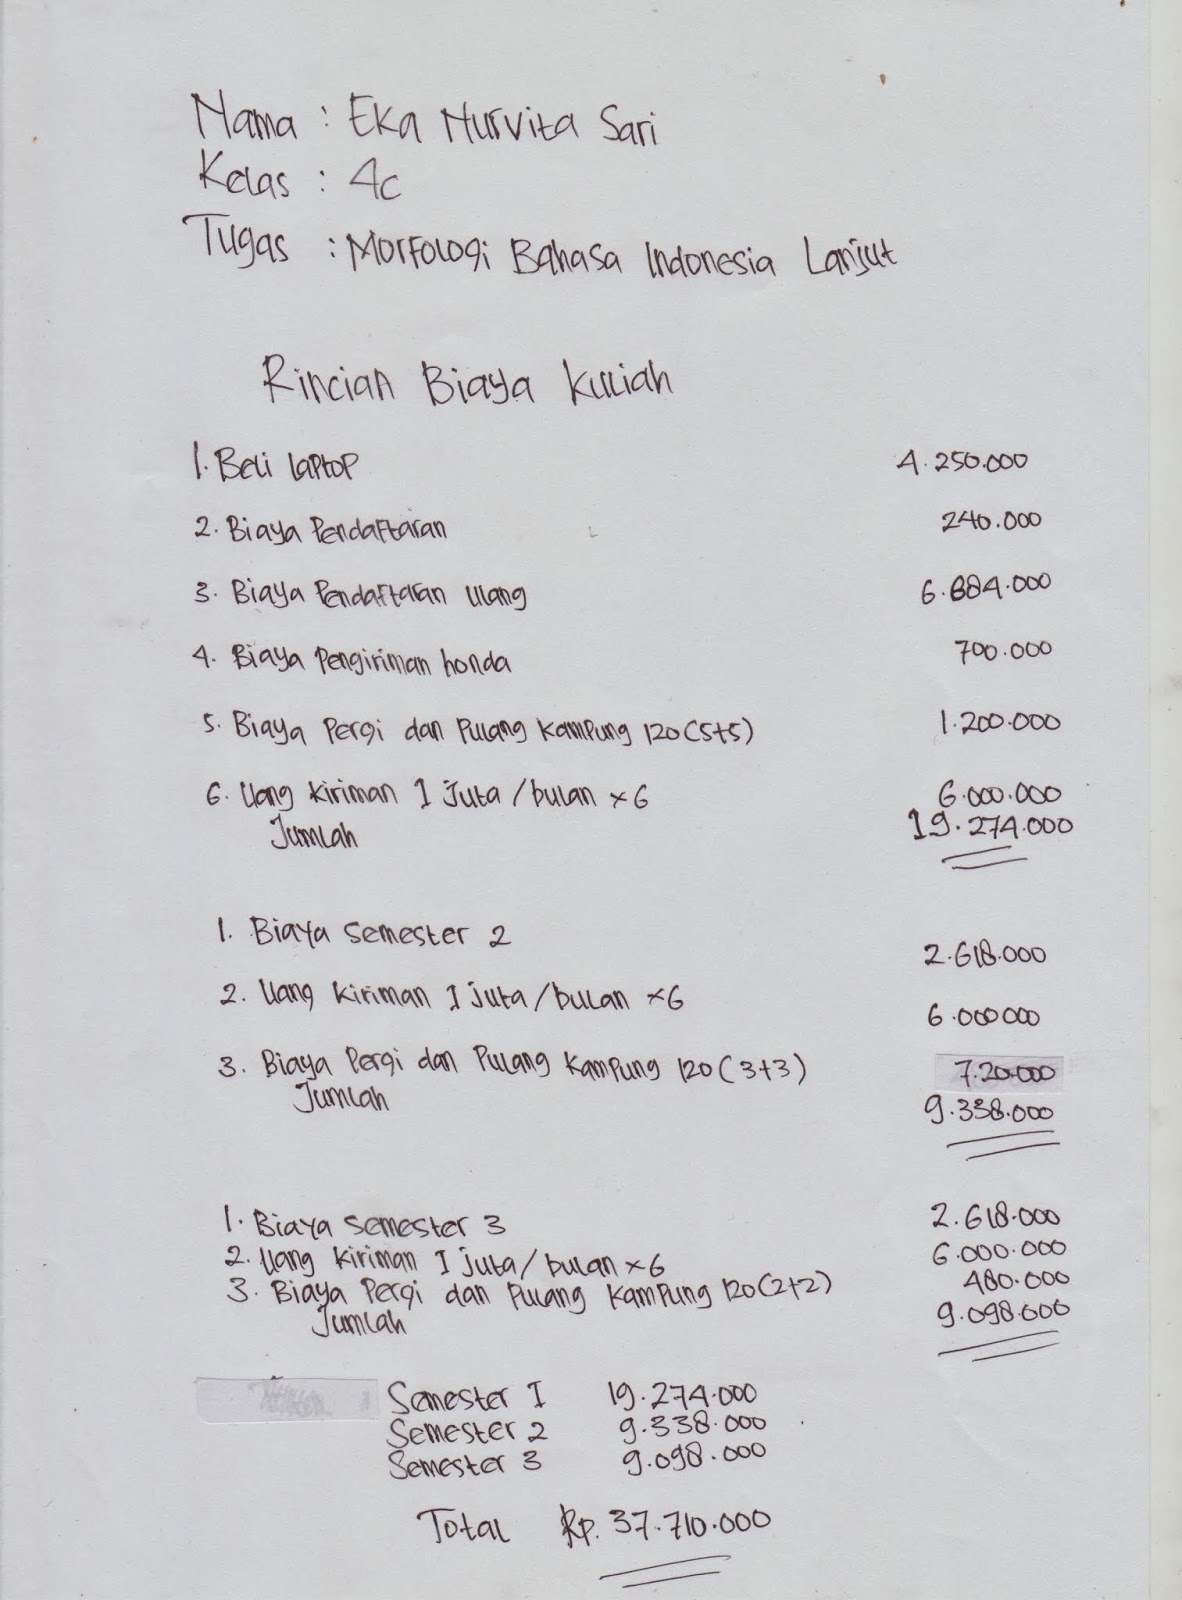 Nama : Eka Nurvita Sari
Kelas : 4c
Tugas : Morfologi Bahasa Indonesia Lanjut
Rincian Biaya Kuliah
1. Beli laptop 4.250.000
2. Biaya Pendaftaran 240.000
3. Biaya Pendaftaran Ulang 6.884.000
4. Biaya Pengiriman honda 700.000
5. Biaya Pergi dan Pulang Kampung 120(5+5) 1.200.000
6. Uang Kiriman 1 Juta/bulan x6 6.000.000
Jumlah 19.274.000
1. Biaya Semester 2 2.618.000
2. Uang Kiriman 1 juta/bulan x6 6.000000
3. Biaya Pergi dan Pulang Kampung 120(3+3) 7.20.000
Jumlah 9.338.000
1. Biaya Semester 3 2.618.000
2. Uang Kiriman 1 juta/bulan x6 6.000.000
3. Biaya Pergi dan Pulang Kampung 120(2+2) 480.000
Jumlah 9.098.000
Semester I 19.274.000
Semester 2 9.338.000
Semester 3 9.098.000
Total Rp. 37.710.000